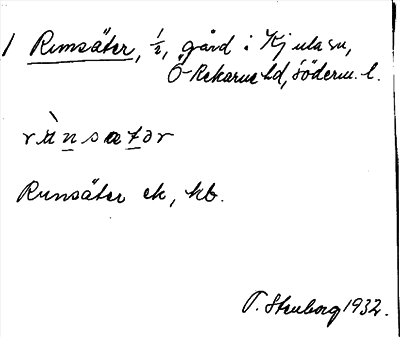 1 Rumsäter, ½, gård i Kjula sn,
Ö. Rekarne hd, Söderm. l.
rùnsatər
Runsäter ek, kb.
T. Stenborg 1932.